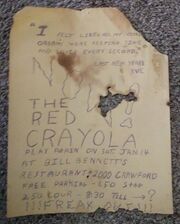 "I FELT LIKE ALL MY
ORGANS WERE KEEPING TIME
EVERY SECOND"
LAST NEW YEARS
EVE
THE
RED
CRAYOLA
PLAY AGAIN ON SAT JAN 14
AT BILL BENNETT'S
RESTAURANT 2000 CRAWFORD
FREE PARKING - $1.50 STAG
2.50 COUR - 8:30 TILL → ?
!!!FREAK OUT!!!